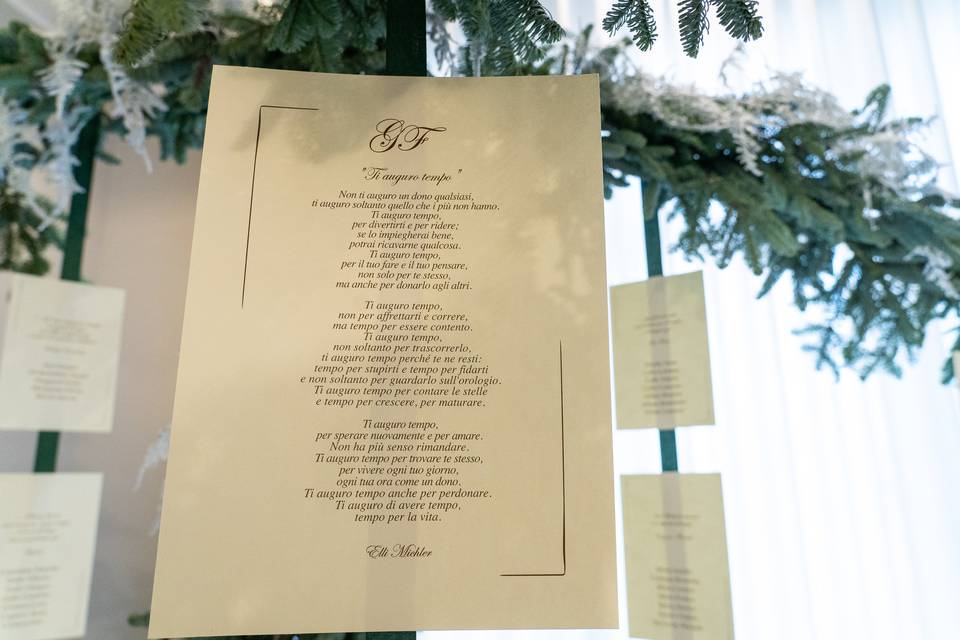 GF
"Ti auguro tempo"
Non ti auguro un dono qualsiasi,
ti auguro soltanto quello che i più non hanno.
Ti auguro tempo,
per divertirti e per ridere;
se lo impiegherai bene,
potrai ricavarne qualcosa.
Ti auguro tempo,
per il tuo fare e il tuo pensare,
non solo per te stesso,
ma anche per donarlo agli altri.
Ti auguro tempo,
non per affrettarti e correre,
ma tempo per essere contento.
Ti auguro tempo,
non soltanto per trascorrerlo,
ti auguro tempo perché te ne resti:
tempo per stupirti e tempo per fidarti
e non soltanto per guardarlo sull'orologio.
Ti auguro tempo per contare le stelle
e tempo per crescere, per maturare.
Ti auguro tempo,
per sperare nuovamente e per amare.
Non ha più senso rimandare.
Ti auguro tempo per trovare te stesso,
per vivere ogni tuo giorno,
ogni tua ora come un dono.
Ti auguro tempo anche per perdonare.
Ti auguro di avere tempo,
tempo per la vita.
Elli Michler